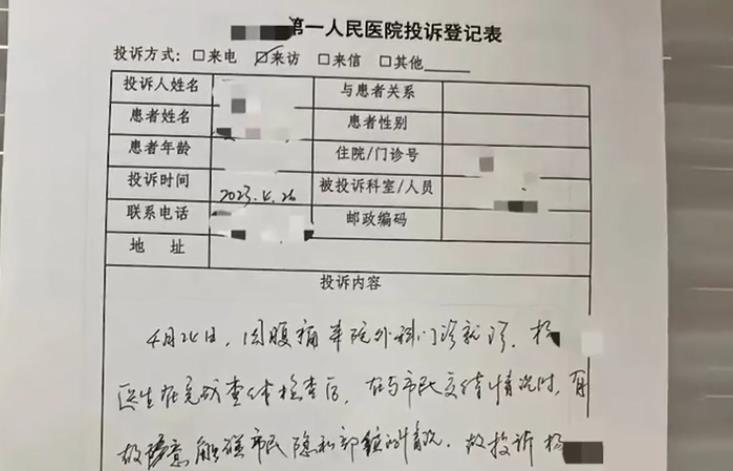 第一人民医院投诉登记表
投诉方式：□来电 ☑来访 □来信 □其他____
投诉人姓名 与患者关系
患者姓名 患者性别
患者年龄 住院/门诊号
投诉时间 2023.4.26 被投诉科室/人员
联系电话 邮政编码
地 址
投诉内容
4月26日，因腹痛来院外科门诊就诊．杨
医生在完成查体检查后，在与市民交待情况时，有
故意触碰市民隐私部位的情况．故投诉杨